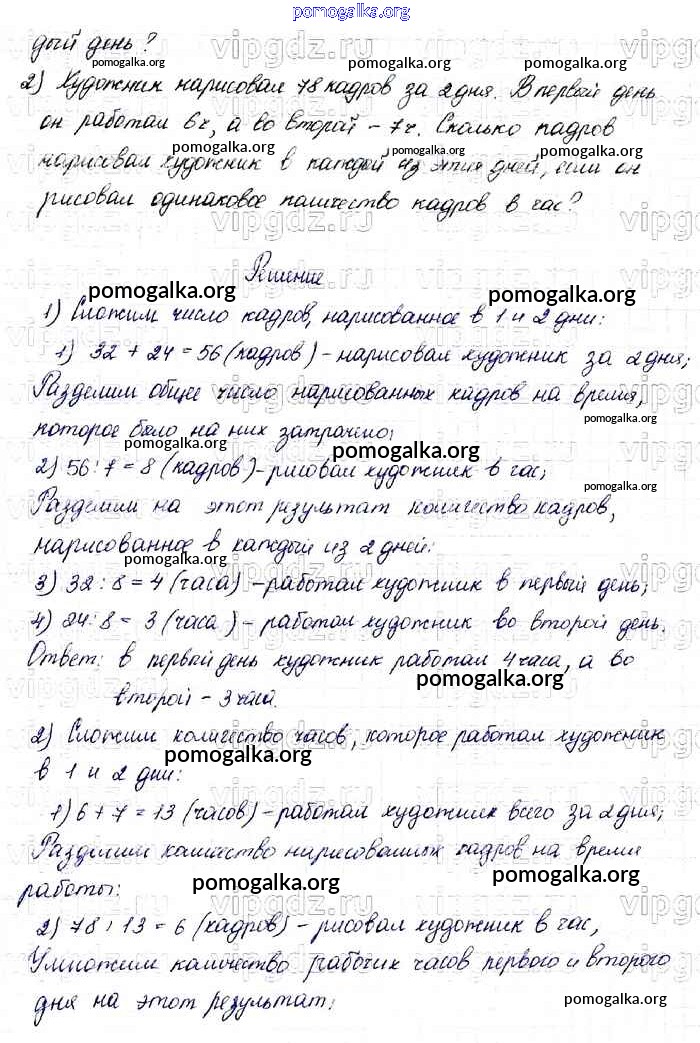 pomogalka.org
дый день?
2) Художник нарисовал 78 кадров за 2 дня. В первый день
он работал 6ч, а во второй - 7ч. Сколько кадров
нарисовал художник в каждый из этих дней, если он
рисовал одинаковое количество кадров в час?
Решение
1) Сложим число кадров, нарисованное в 1 и 2 дни:
1) 32 + 24 = 56 (кадров) - нарисовал художник за 2 дня;
Разделим общее число нарисованных кадров на время,
которое было на них затрачено;
2) 56 : 7 = 8 (кадров) - рисовал художник в час;
Разделим на этот результат количество кадров,
нарисованное в каждый из 2 дней:
3) 32 : 8 = 4 (часа) - работал художник в первый день;
4) 24 : 8 = 3 (часа) - работал художник во второй день.
Ответ: в первый день художник работал 4 часа, а во
второй - 3 часа.
2) Сложим количество часов, которое работал художник
в 1 и 2 дни:
1) 6 + 7 = 13 (часов) - работал художник всего за 2 дня;
Разделим количество нарисованных кадров на время
работы:
2) 78 : 13 = 6 (кадров) - рисовал художник в час,
Умножим количество рабочих часов первого и второго
дня на этот результат:
pomogalka.org